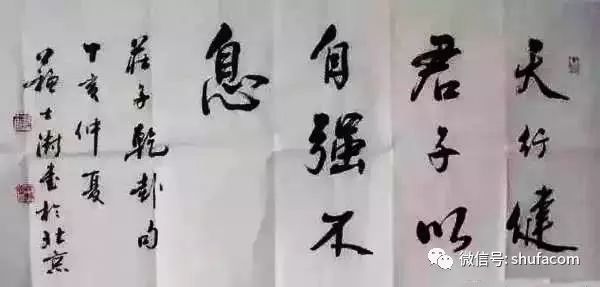 天行健
君子以
自强不
息
莊子乾卦句
丁亥仲夏
蘇士澍書於北京
微信号: shufacom